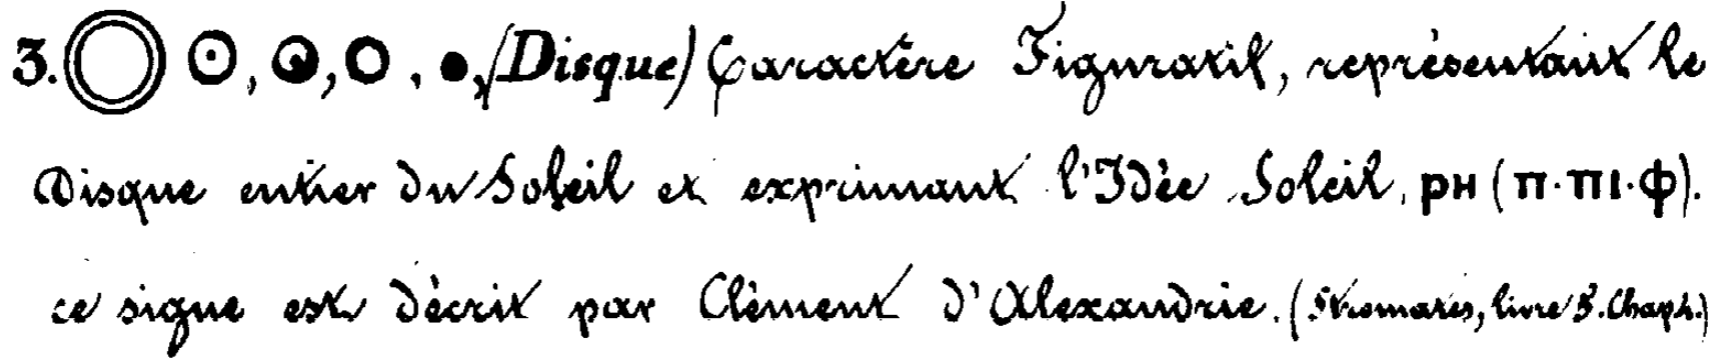 3. ☉, , , . (Disque) Caractère Figuratif, représentant le
Disque entier du Soleil et exprimant l'Idée Soleil, ⲣⲏ (ⲡ·ⲡⲓ·ⲫ).
ce signe est décrit par Clément d'Alexandrie. (Stromates, livre 5. Chap.)